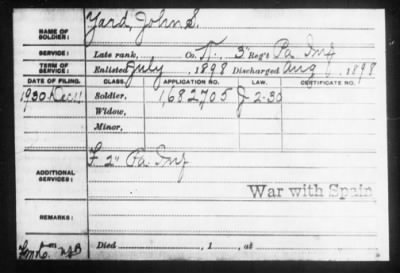 NAME OF SOLDIER: Yard, John S.
SERVICE: Late rank, Co. 3" Reg't Pa Inf
TERM OF SERVICE: Enlisted July , 1898 Discharged Aug , 1898
DATE OF FILING. CLASS. APPLICATION NO. LAW. CERTIFICATE NO.
1930 Dec. 11 Soldier, 1,682705 J 2-30
Widow,
Minor,
ADDITIONAL SERVICES: F 2" Pa Inf
War with Spain
REMARKS:
Died , 1 , at